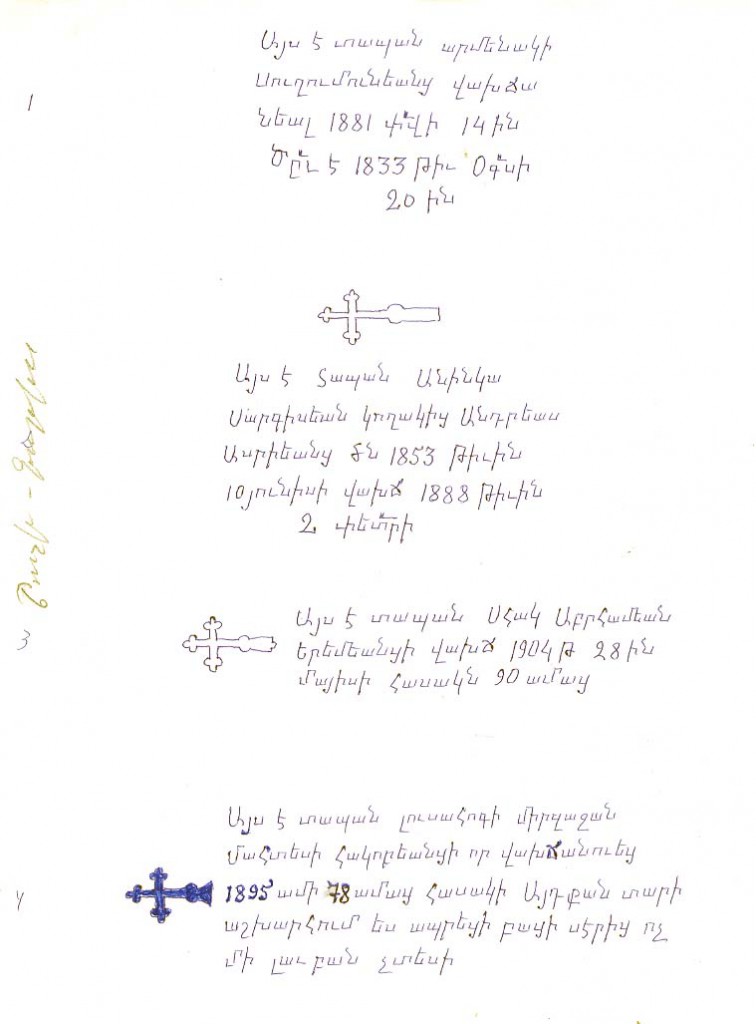 1
Այս է տապան արմենակի
Սուղումունեանց վախճա
նեալ 1881 փ՟վի 14 ին
Ծ՟ըլ է 1833 թիւ Օ՟գսի
20 ին
Այս է Տապան Անինկա
Սարգիսեան կողակից Անդրեաս
Ասրիեանց ծն 1853 թիւին
10 յունիսի վախճ 1888 թիւին
2 փետ՟րի
3
Այս է տապան Սհակ Աբրհամեան
Երեմեանցի վախճ 1904 թ 28 ին
մայիսի հասակն 90 ամայ
4
Այս է տապան լուսահոգի միրզաջան
մահտեսի հակոբեանցի որ վախճանուեց
1895 ամի 78 ամայ հասակի Այդքան տարի
աշխարհում ես ապրեցի բացի սէրից ոչ
մի լաւ բան չտեսի